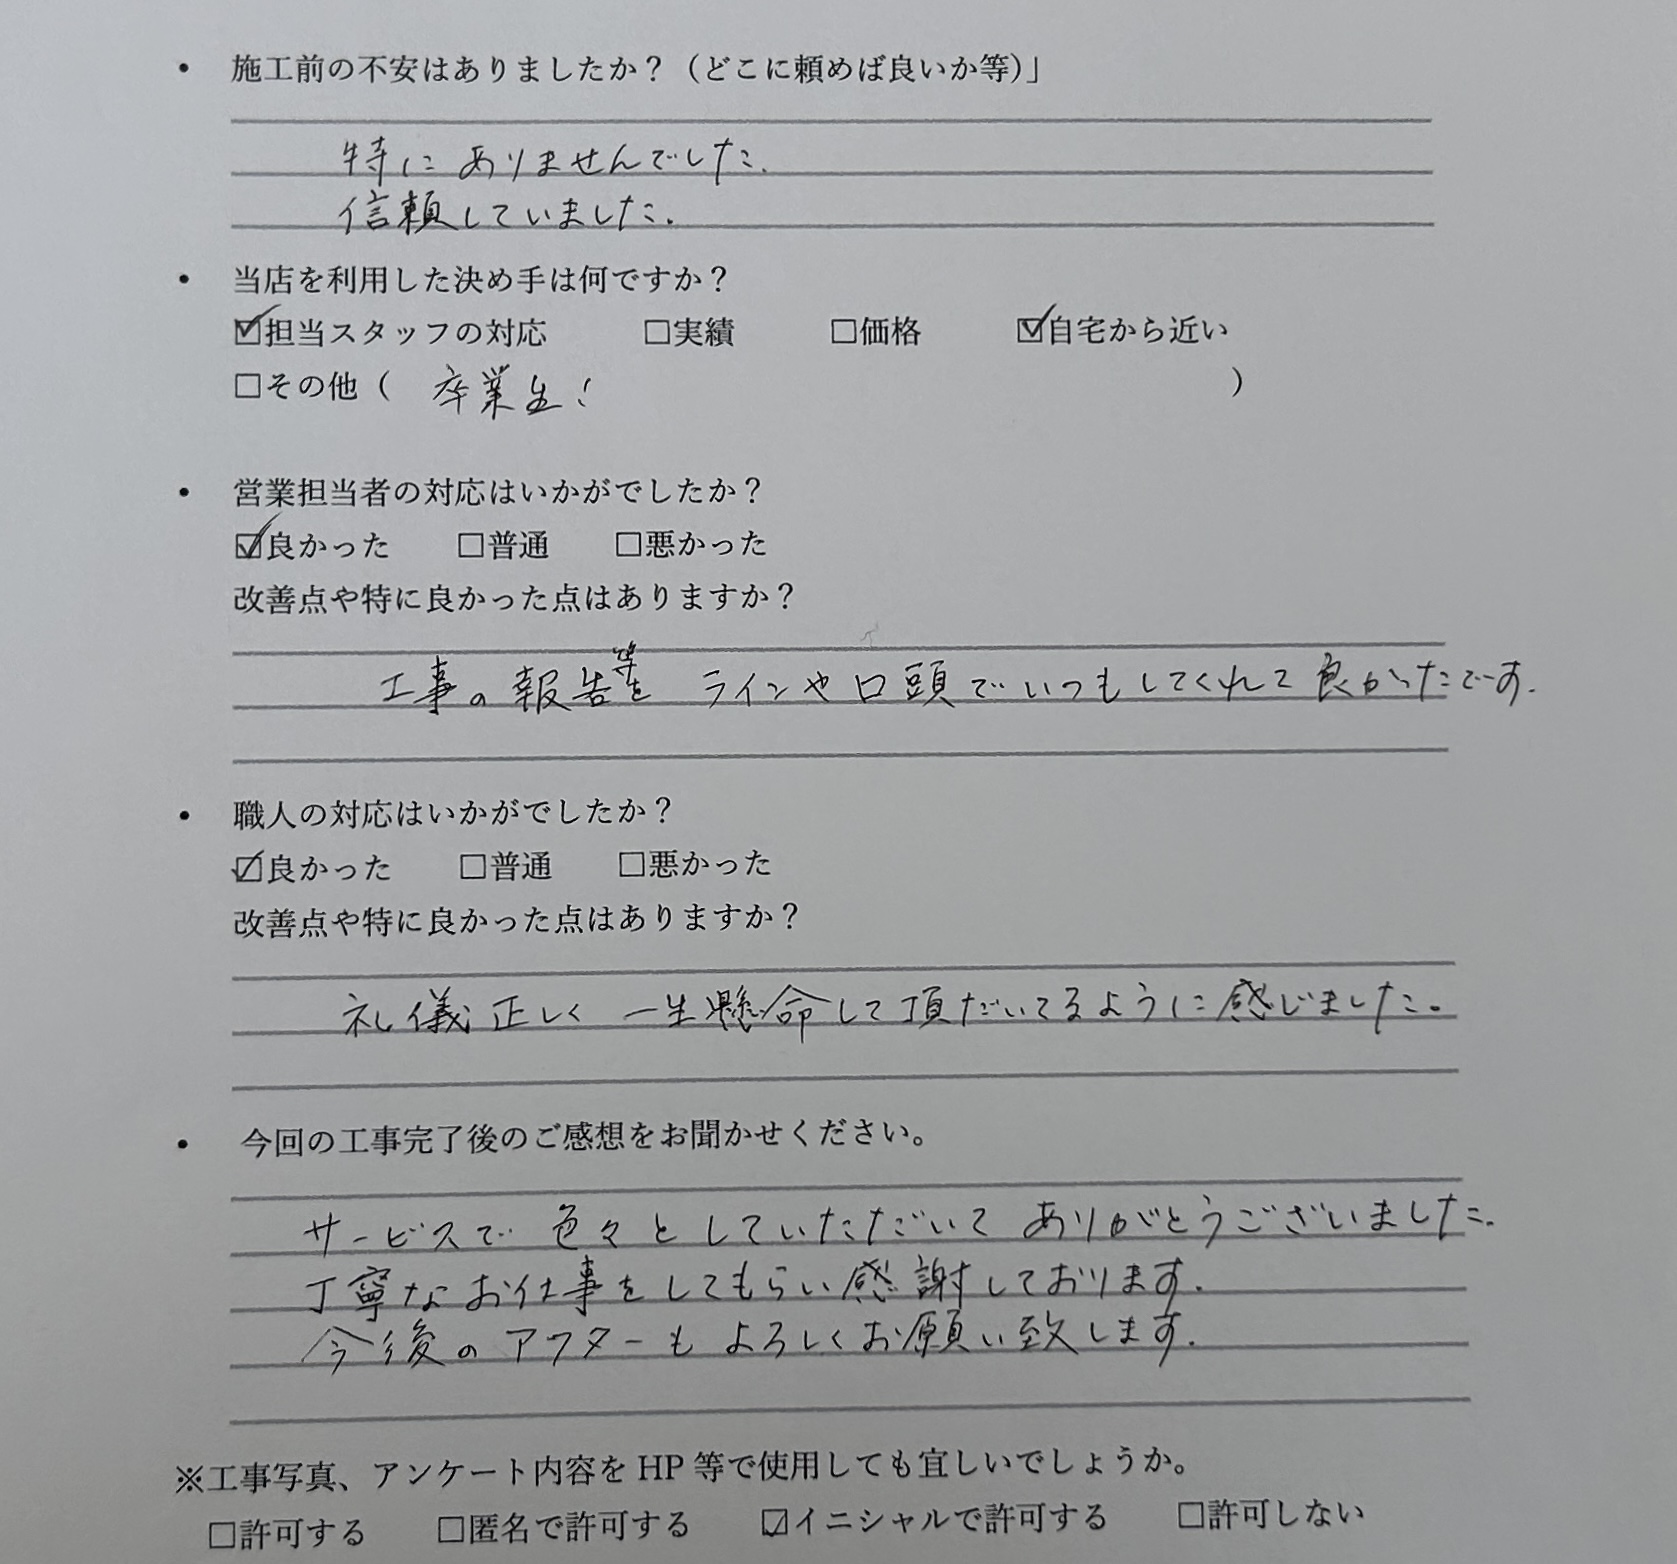 • 施工前の不安はありましたか？（どこに頼めば良いか等）」
特にありませんでした.
信頼していました.
• 当店を利用した決め手は何ですか？
☑担当スタッフの対応 □実績 □価格 ☑自宅から近い
□その他（ 卒業生! ）
• 営業担当者の対応はいかがでしたか？
☑良かった □普通 □悪かった
改善点や特に良かった点はありますか？
工事の報告等を ラインや口頭でいつもしてくれて良かったです.
• 職人の対応はいかがでしたか？
☑良かった □普通 □悪かった
改善点や特に良かった点はありますか？
礼儀正しく 一生懸命して頂だいてるように感じました。
• 今回の工事完了後のご感想をお聞かせください。
サービスで 色々としていただいて ありがとうございました.
丁寧なお仕事をしてもらい感謝しております.
今後のアフターもよろしくお願い致します.
※工事写真、アンケート内容を HP 等で使用しても宜しいでしょうか。
□許可する □匿名で許可する ☑イニシャルで許可する □許可しない